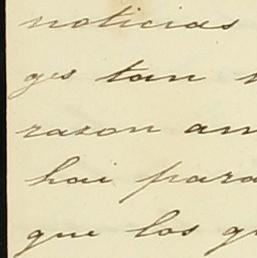 noticias
ges tan
razon an
hai para
que los g